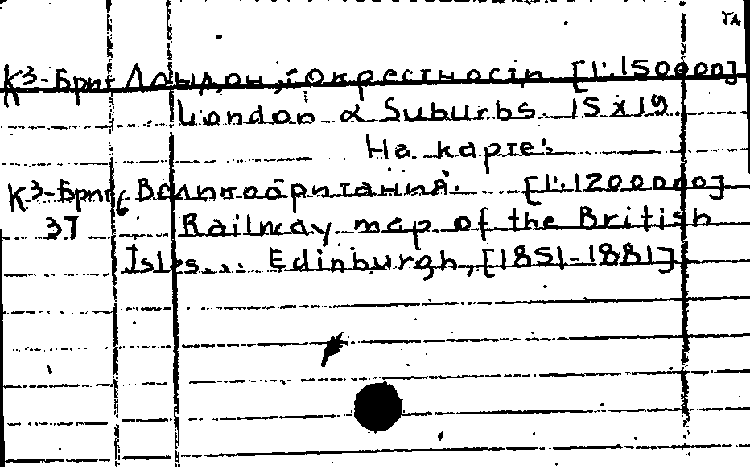 ГА
К3-Брит Лондон, окрестности [1:150000]
London & Suburbs. 15x19
На карте:
К3-Брит Великобритания. [1:1200000]
37 Railway map of the British
Isles... Edinburgh, [1851-1881]